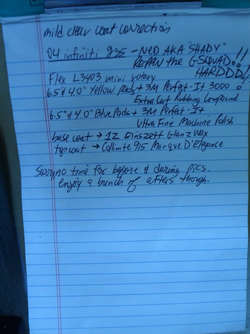 mild clear coat correction
04 infiniti G35 - NED AKA SHADY
REPPIN the G-SQUAD!!
HARDDD!
Flex L3403 mini rotary
6.5" & 4.0" Yellow Pads + 3M Perfect-It 3000
Extra Cut Rubbing Compound
6.5" & 4.0" Blue Pads + 3M Perfect-It
Ultra Fine Machine Polish
base coat → 1Z Einszett Glanz Wax
top coat → Collinite 915 Marque D'Elegance
Sorry no time for before & during pics.
enjoy a bunch of afters though.